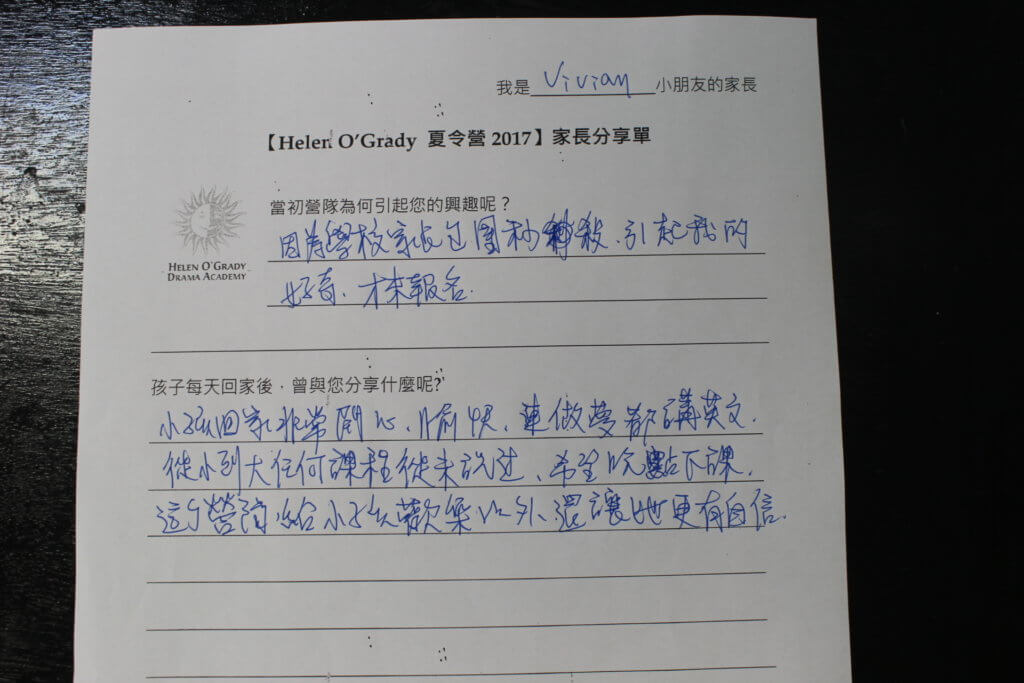 我是 Vivian 小朋友的家長
【Helen O'Grady 夏令營 2017】家長分享單
HELEN O'GRADY
DRAMA ACADEMY
當初營隊為何引起您的興趣呢？
因為學校家長包團秒殺、引起我的
好奇、才來報名.
孩子每天回家後，曾與您分享什麼呢?
小孩回家非常開心、愉快、連做夢都講英文.
從小到大任何課程從未說过、希望晚點下課.
這个營隊給小孩歡樂以外、還讓她更有自信.